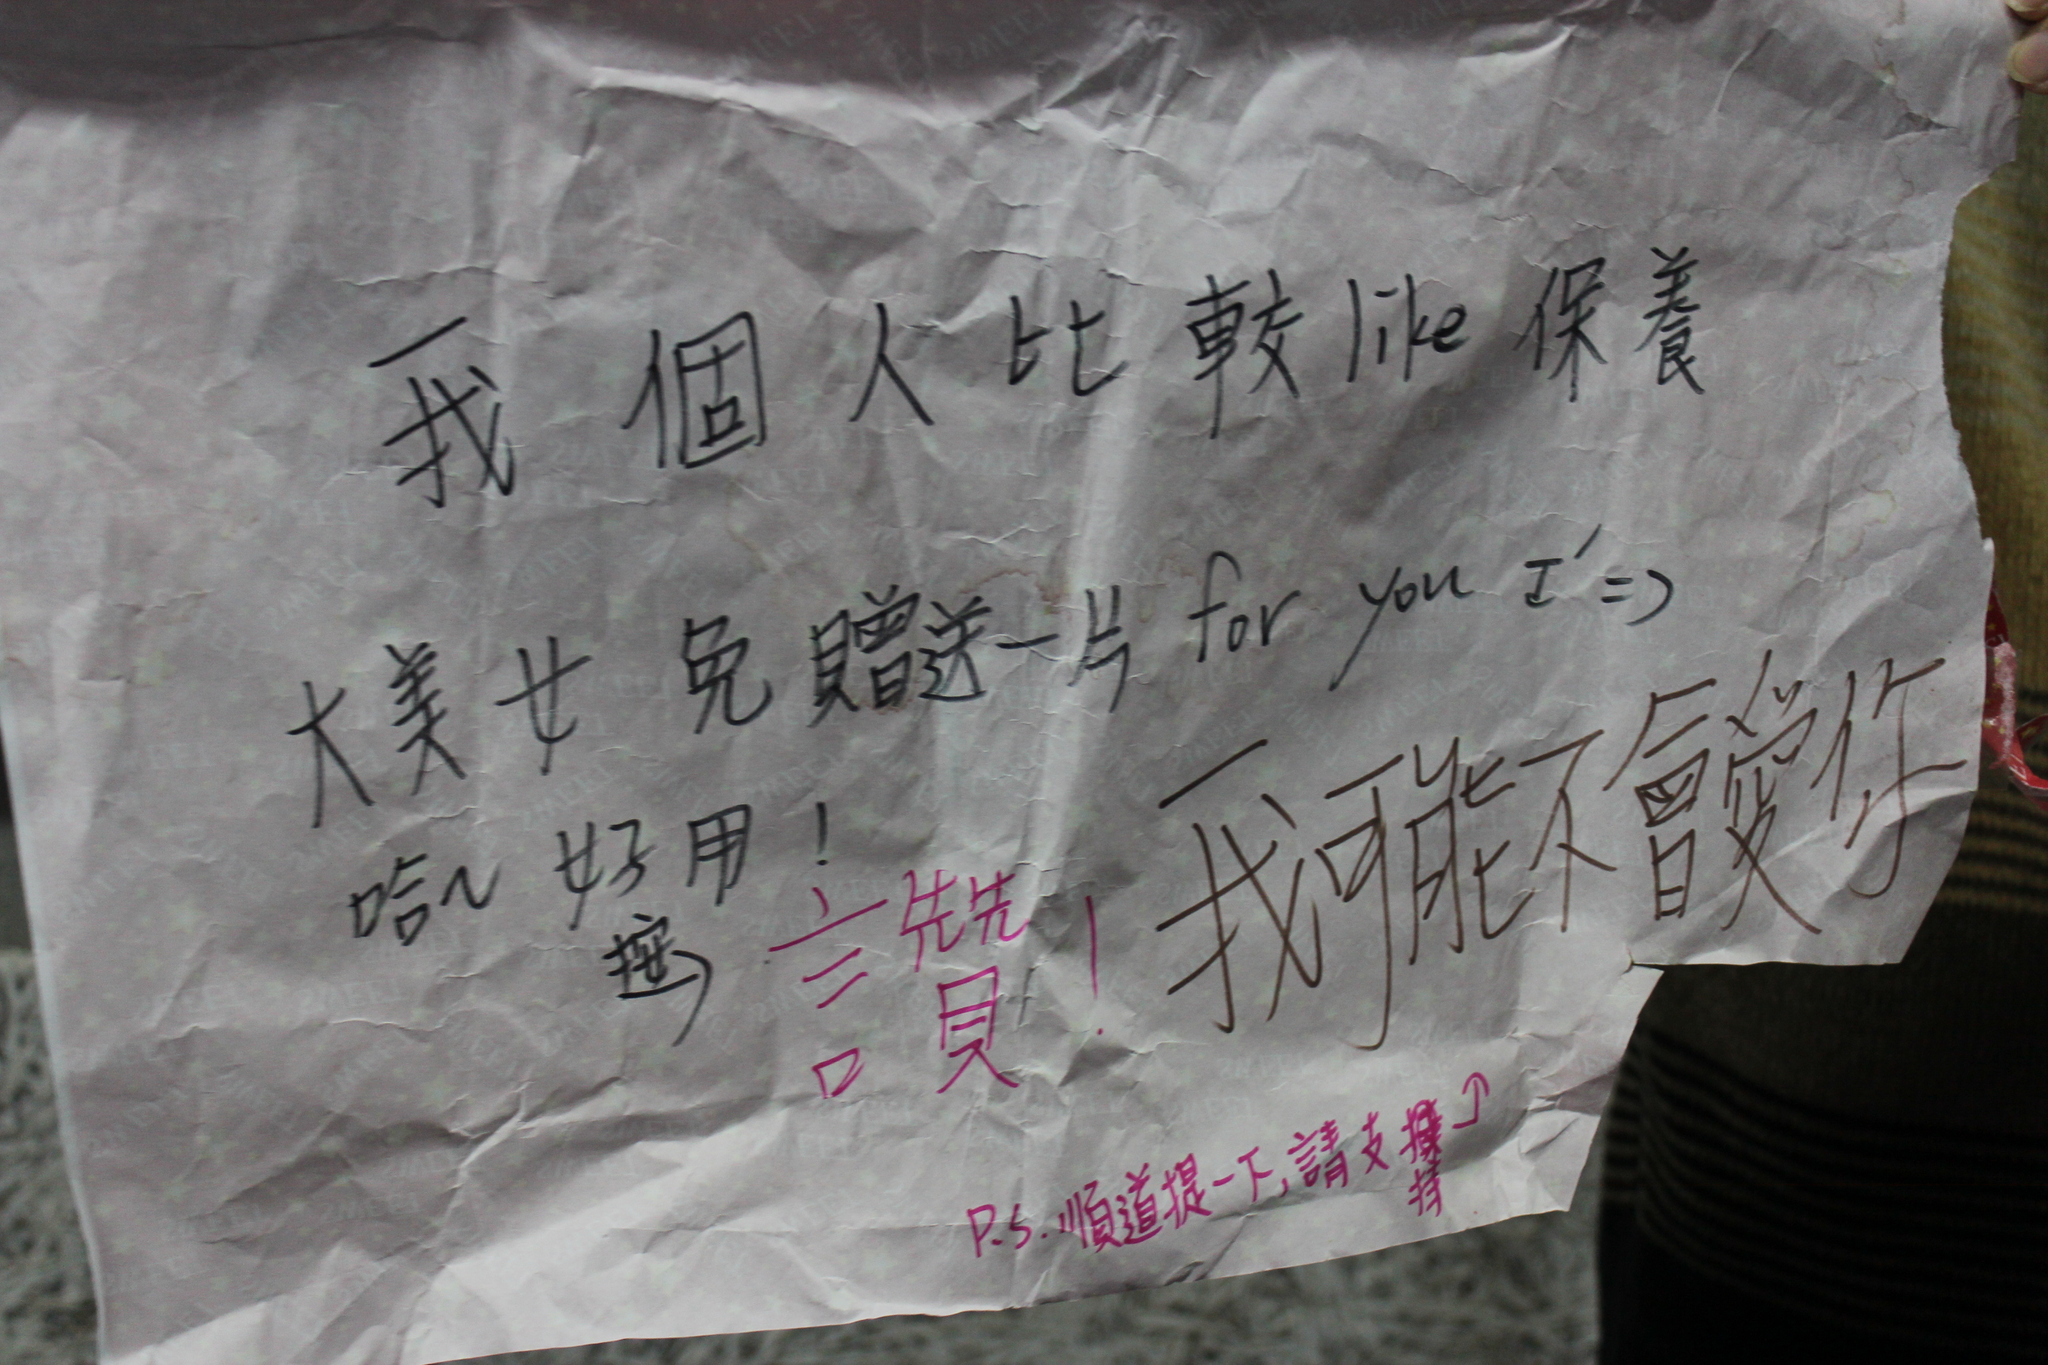 我個人比較like保養
大美女免贈送一片for you I'=>
哈~好用!
我可能不會愛你
讚!
P.S.順道提一下,請支持